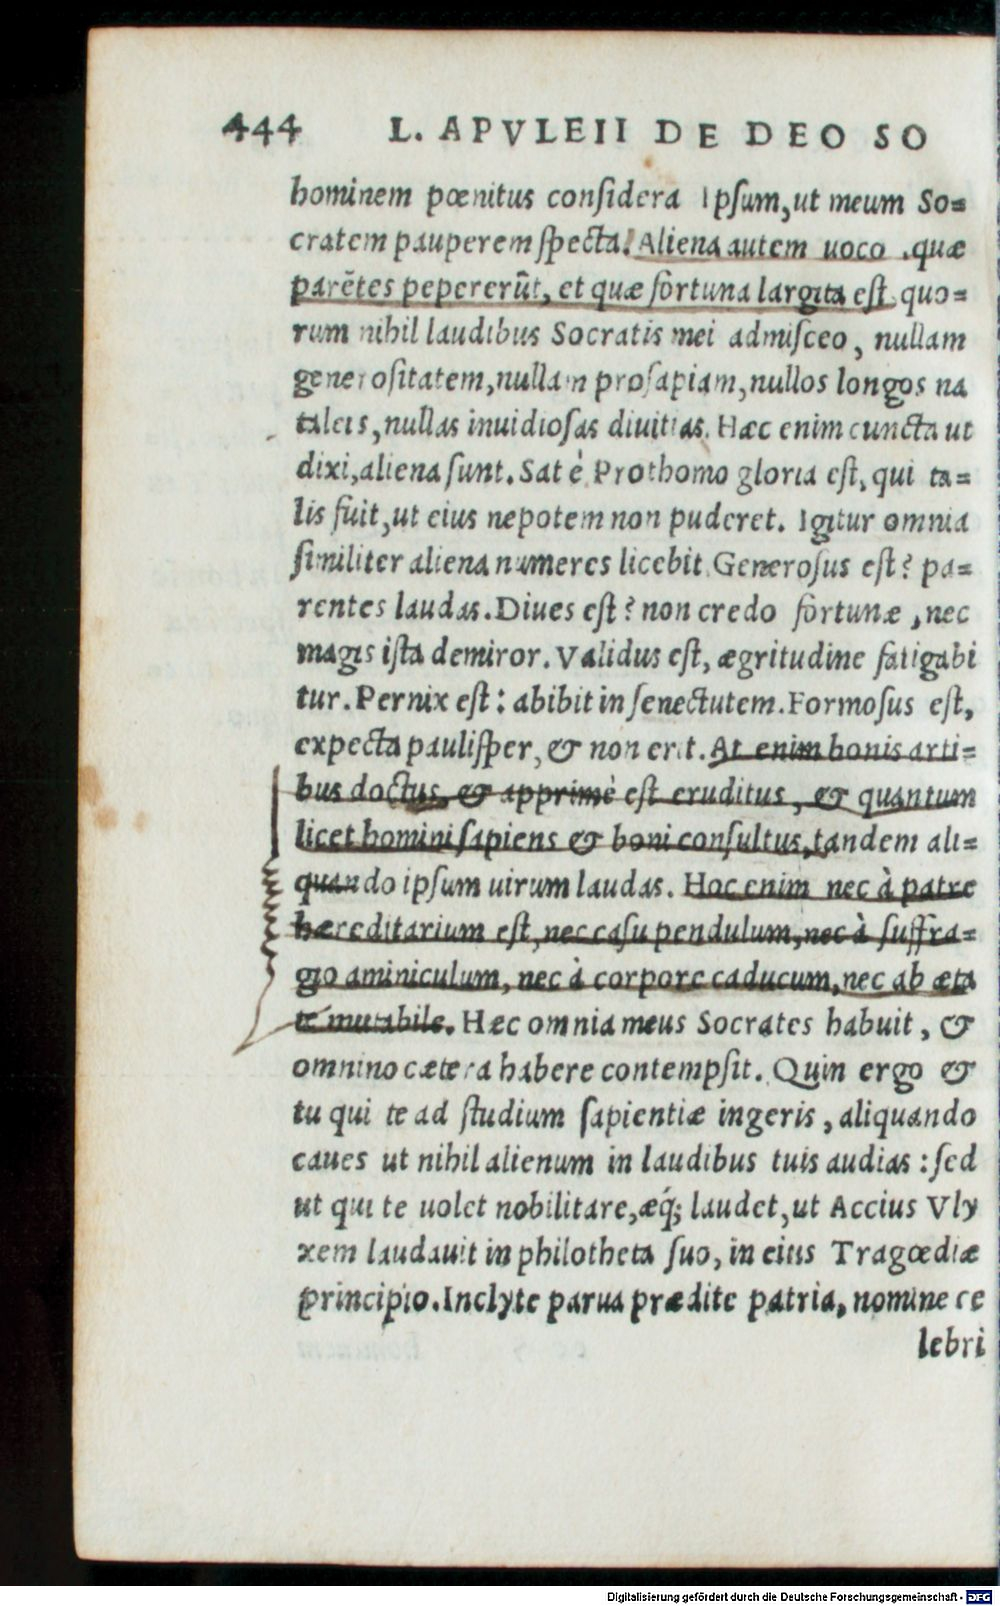 444 L. APVLEII DE DEO SO
hominem pœnitus considera Ipsum, ut meum So=
cratem pauperem specta. Aliena autem uoco, quæ
parẽtes pepererũt, et quæ fortuna largita est, quo=
rum nihil laudibus Socratis mei admisceo, nullam
generositatem, nullam prosapiam, nullos longos na
taleis, nullas inuidiosas diuitias. Hæc enim cuncta ut
dixi, aliena sunt. Sat è Prothomo gloria est, qui ta=
lis fuit, ut eius nepotem non puderet. Igitur omnia
similiter aliena numeres licebit. Generosus est? pa=
rentes laudas. Diues est? non credo fortunæ, nec
magis ista demiror. Validus est, ægritudine fatigabi
tur. Pernix est: abibit in senectutem. Formosus est,
expecta paulisper, & non erit. At enim bonis arti=
bus doctus, & apprimè est eruditus, & quantum
licet homini sapiens & boni consultus, tandem ali=
quando ipsum uirum laudas. Hoc enim nec à patre
hæreditarium est, nec casu pendulum, nec à suffra=
gio aminiculum, nec à corpore caducum, nec ab æta
te mutabile. Hæc omnia meus Socrates habuit, &
omnino cætera habere contempsit. Quin ergo &
tu qui te ad studium sapientiæ ingeris, aliquando
caues ut nihil alienum in laudibus tuis audias: sed
ut qui te uolet nobilitare, æq́; laudet, ut Accius Vly
xem laudauit in philotheta suo, in eius Tragœdiæ
principio. Inclyte parua prædite patria, nomine ce
lebri
Digitalisierung gefördert durch die Deutsche Forschungsgemeinschaft - DFG